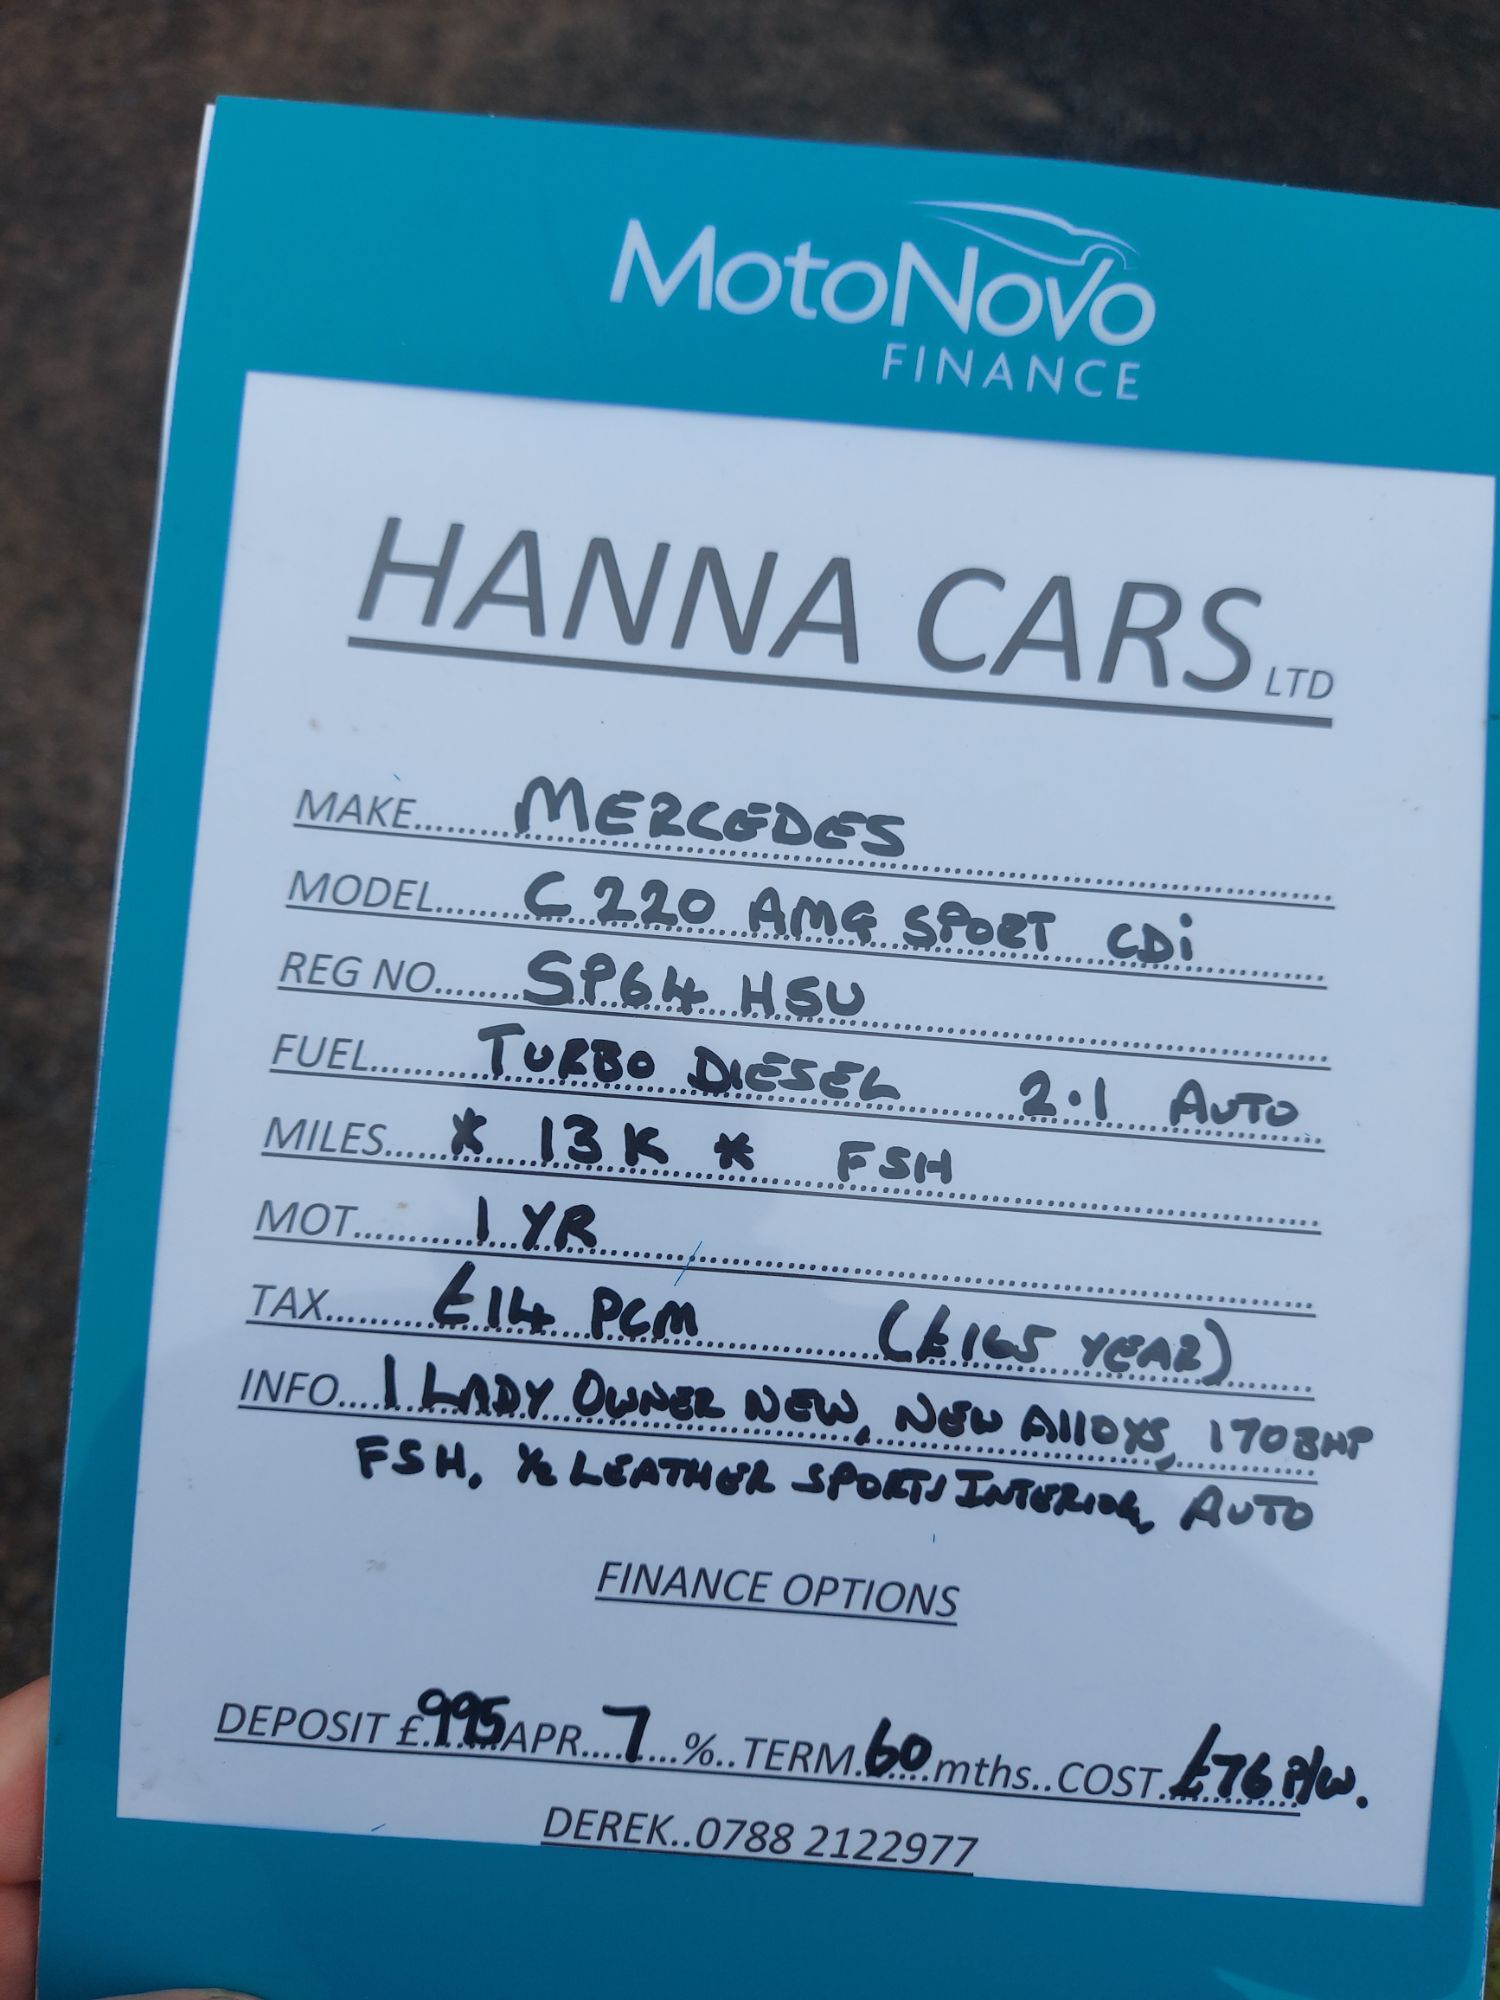 MotoNovo
FINANCE
HANNA CARS LTD
MAKE........MERCEDES........
MODEL......C 220 AMG SPORT CDi........
REG NO......SP64 HSU........
FUEL........TURBO DIESEL 2.1 AUTO
MILES......* 13K * FSH........
MOT........1 YR........
TAX........£14 PCM (£165 YEAR)
INFO....1 LADY OWNER NEW, NEW AllOYS, 170BHP
FSH, ½ LEATHER SPORTS INTERIOR, AUTO
FINANCE OPTIONS
DEPOSIT £.995 APR....7....%..TERM.60 mths..COST.£76 P/W.
DEREK..0788 2122977